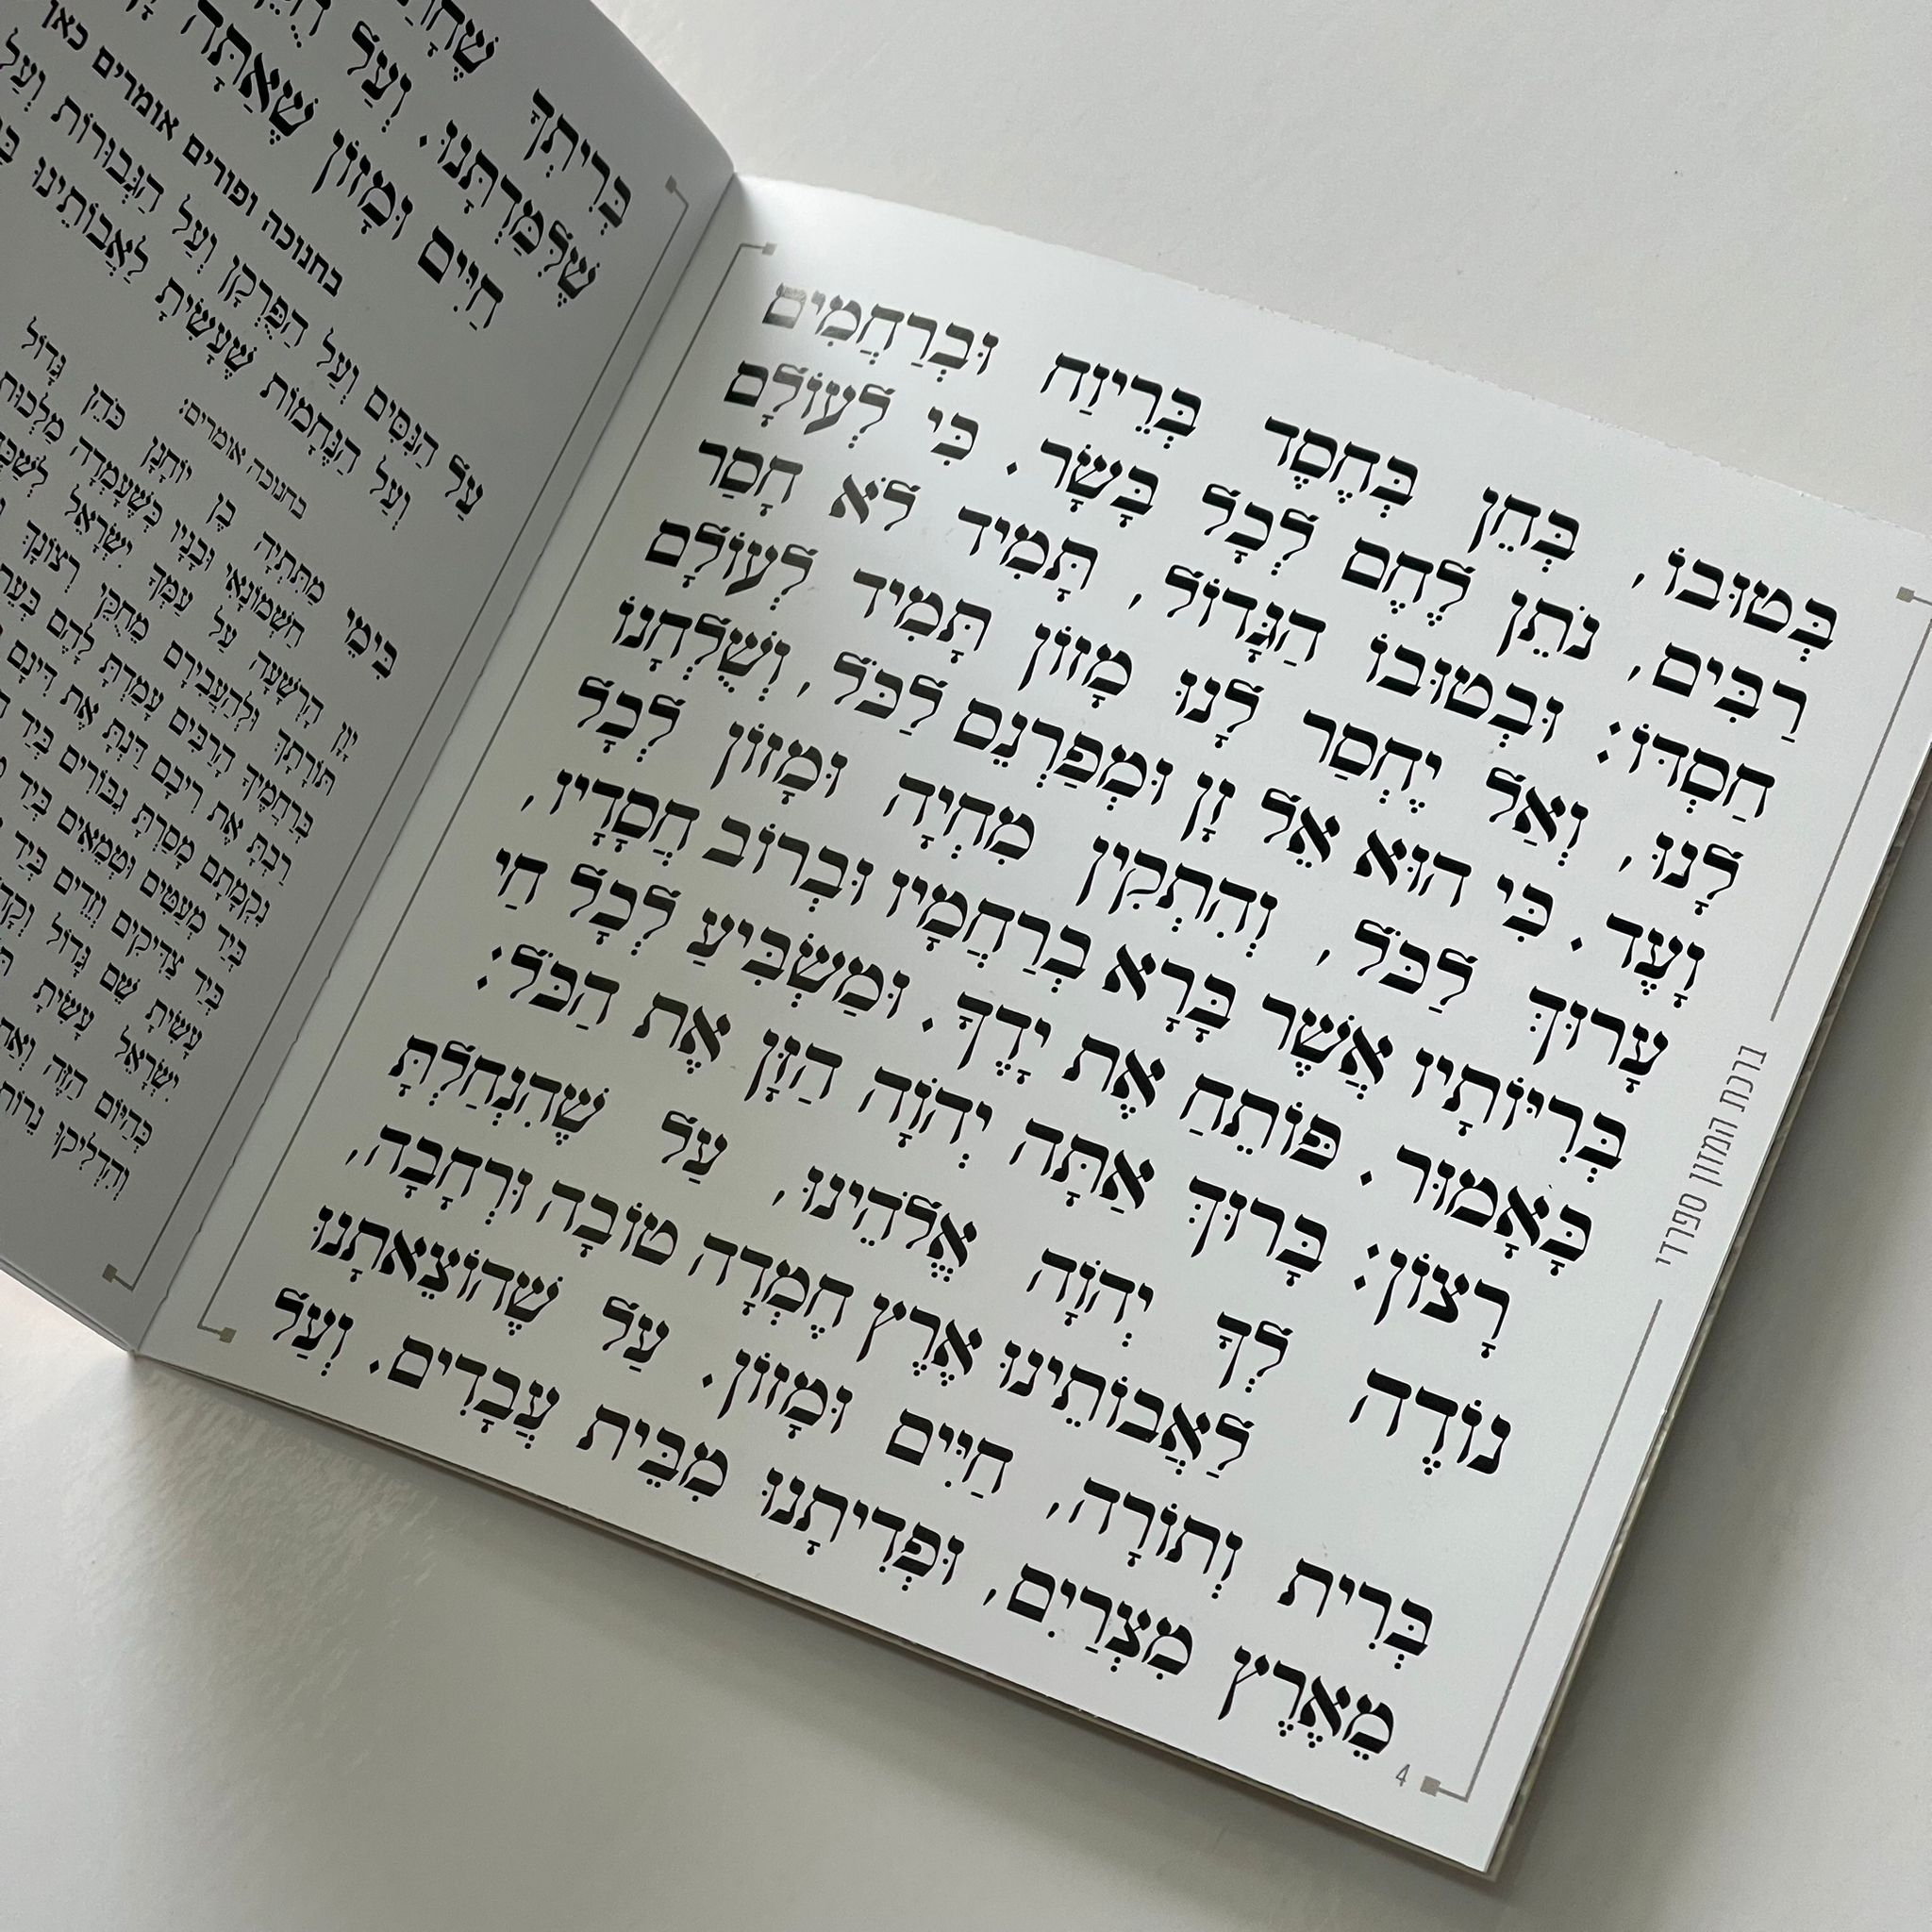 בְּטוּבוֹ, בְּחֵן בְּחֶסֶד בְּרֵיוַח וּבְרַחֲמִים
רַבִּים, נֹתֵן לֶחֶם לְכָל בָּשָׂר. כִּי לְעוֹלָם
חַסְדּוֹ: וּבְטוּבוֹ הַגָּדוֹל, תָּמִיד לֹא חָסַר
לָנוּ, וְאַל יֶחְסַר לָנוּ מָזוֹן תָּמִיד לְעוֹלָם
וָעֶד. כִּי הוּא אֵל זָן וּמְפַרְנֵס לַכֹּל, וְשֻׁלְחָנוֹ
עָרוּךְ לַכֹּל, וְהִתְקִין מִחְיָה וּמָזוֹן לְכָל
בְּרִיּוֹתָיו אֲשֶׁר בָּרָא בְרַחֲמָיו וּבְרוֹב חֲסָדָיו,
כָּאָמוּר. פּוֹתֵחַ אֶת יָדֶךָ. וּמַשְׂבִּיעַ לְכָל חַי
רָצוֹן: בָּרוּךְ אַתָּה יְהֹוָה הַזָּן אֶת הַכֹּל:
נוֹדֶה לְּךָ יְהֹוָה אֱלֹהֵינוּ, עַל שֶׁהִנְחַלְתָּ
לַאֲבוֹתֵינוּ אֶרֶץ חֶמְדָה טוֹבָה וּרְחָבָה,
בְּרִית וְתוֹרָה, חַיִּים וּמָזוֹן. עַל שֶׁהוֹצֵאתָנוּ
מֵאֶרֶץ מִצְרַיִם, וּפְדִיתָנוּ מִבֵּית עֲבָדִים. וְעַל
4
ברכת המזון ספרדי
בְּרִיתְךָ
שֶׁלִּמַּדְתָּנוּ. וְעַל
חַיִּים וּמָזוֹן שֶׁאַתָּה
בחנוכה ופורים אומרים כאן
עַל הַנִּסִּים וְעַל הַפֻּרְקָן וְעַל הַגְּבוּרוֹת וְעַל
וְעַל הַנֶּחָמוֹת שֶׁעָשִׂיתָ לַאֲבוֹתֵינוּ
בחנוכה אומרים:
בִּימֵי מַתִּתְיָה בֶן יוֹחָנָן כֹּהֵן גָּדוֹל
חַשְׁמוֹנָאִי וּבָנָיו כְּשֶׁעָמְדָה מַלְכוּת
יָוָן הָרְשָׁעָה עַל עַמְּךָ יִשְׂרָאֵל
תּוֹרָתָךְ וּלְהַעֲבִירָם מֵחֻקֵּי רְצוֹנָךְ
בְּרַחֲמֶיךָ הָרַבִּים עָמַדְתָּ לָהֶם בְּעֵת
רַבְתָּ אֶת רִיבָם דַּנְתָּ אֶת דִּינָם
נִקְמָתָם מָסַרְתָּ גִבּוֹרִים בְּיַד
בְּיַד מְעַטִּים וּטְמֵאִים בְּיַד
בְּיַד צַדִּיקִים וְזֵדִים בְּיַד
עָשִׂיתָ שֵׁם גָּדוֹל
יִשְׂרָאֵל עָשִׂיתָ
כְּהַיּוֹם הַזֶּה
וְהִדְלִיקוּ נֵרוֹת